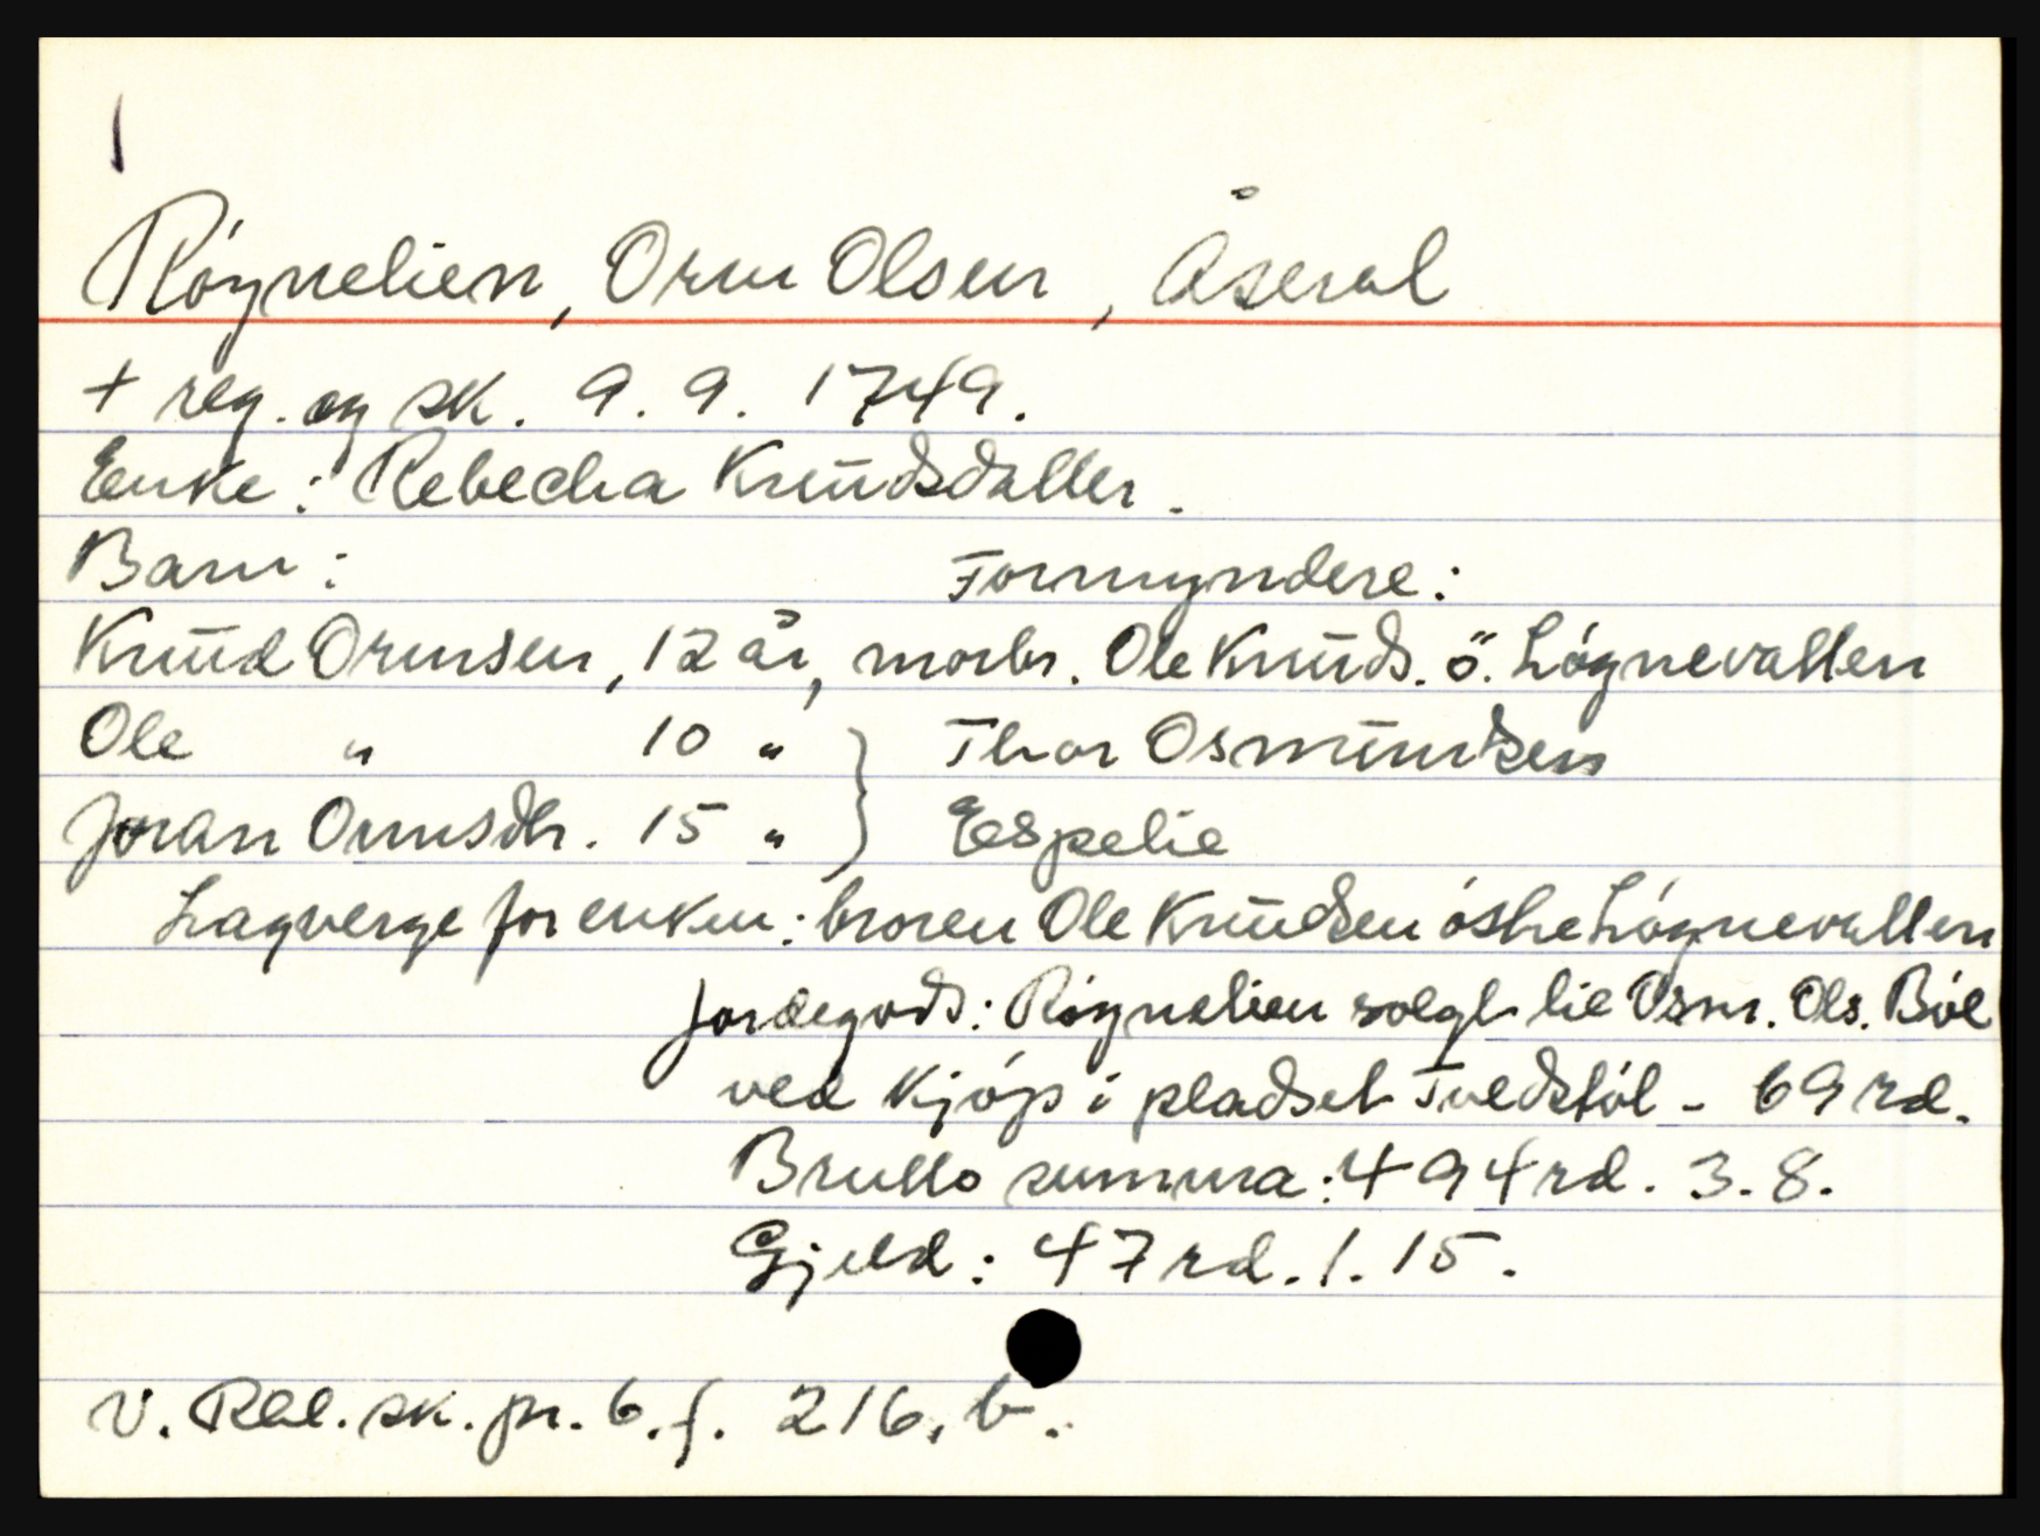 Rógnelien, Orm Olsen, Åseral
+ reg. og sk. 9. 9. 1749.
Enke: Rebecha Knŭdsdatter.
Barn: Formyndere:
Knŭd Ormsen, 12 år, morbr. Ole Knŭds. ö. Lógnevatten
Ole " 10 " } Thor Osmŭndsen
Joran Ormsdtr. 15 " } Espelie
Lagverge for enken: broren Ole Knŭdsen óstre Lógnevatten
Jordegods: Rógnelien solgt til Osm. Ols. Ból
ved kjóp i pladset Tvedstól - 69 rd.
Brutto summa: 494 rd. 3. 8.
Gjeld: 47 rd. 1. 15.
V. Rbl. sk. pr. 6. f. 216, b.